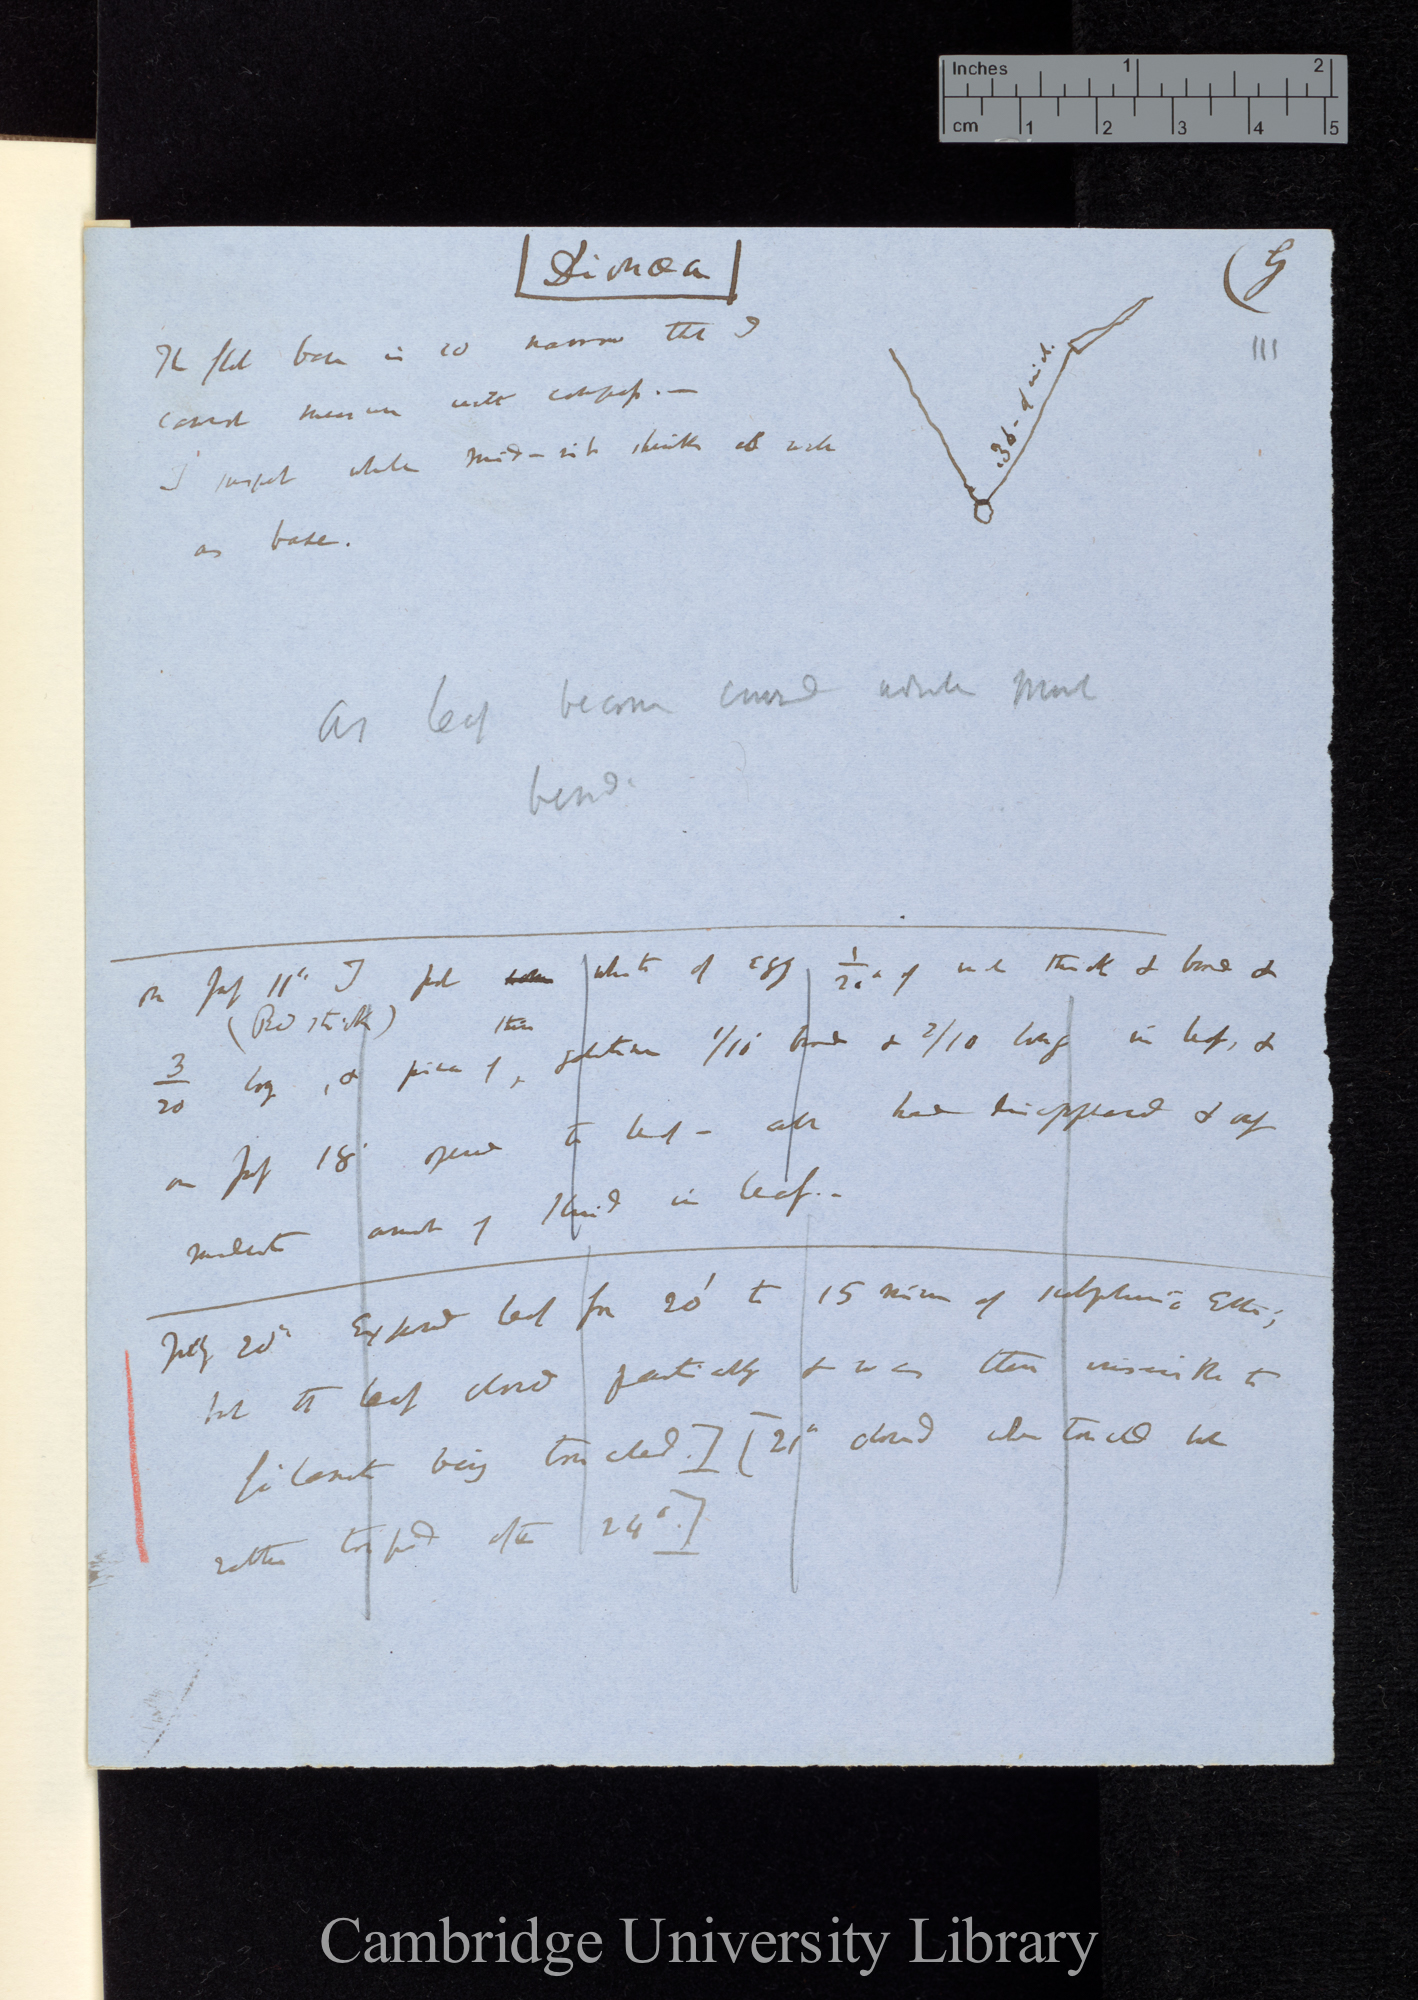 Inches 1 2
cm 1 2 3 4 5
Dionæa
(G
111
The flat base is so narrow that I
cannot measure with compass. —
.36 – of inch.
I suspect whole mid-rib shrinks as well
as base.
As leaf becomes curved whole must
bend.
on July 11th I put white of egg 1/20th of inch thick & broad &
(Red stick) thin
3/20 long, & piece of gelatine 1/10 broad & 2/10 long in leaf, &
on July 18th opened the leaf – all had disappeared & only
moderate amount of fluid in leaf. –
July 20th Exposed leaf for 20' to 15 minims of sulphuric Ether;
but the leaf closed partially & was then insensible to
filaments being touched.] [21st closed when touched but
rather torpid after 24h.]
Cambridge University Library